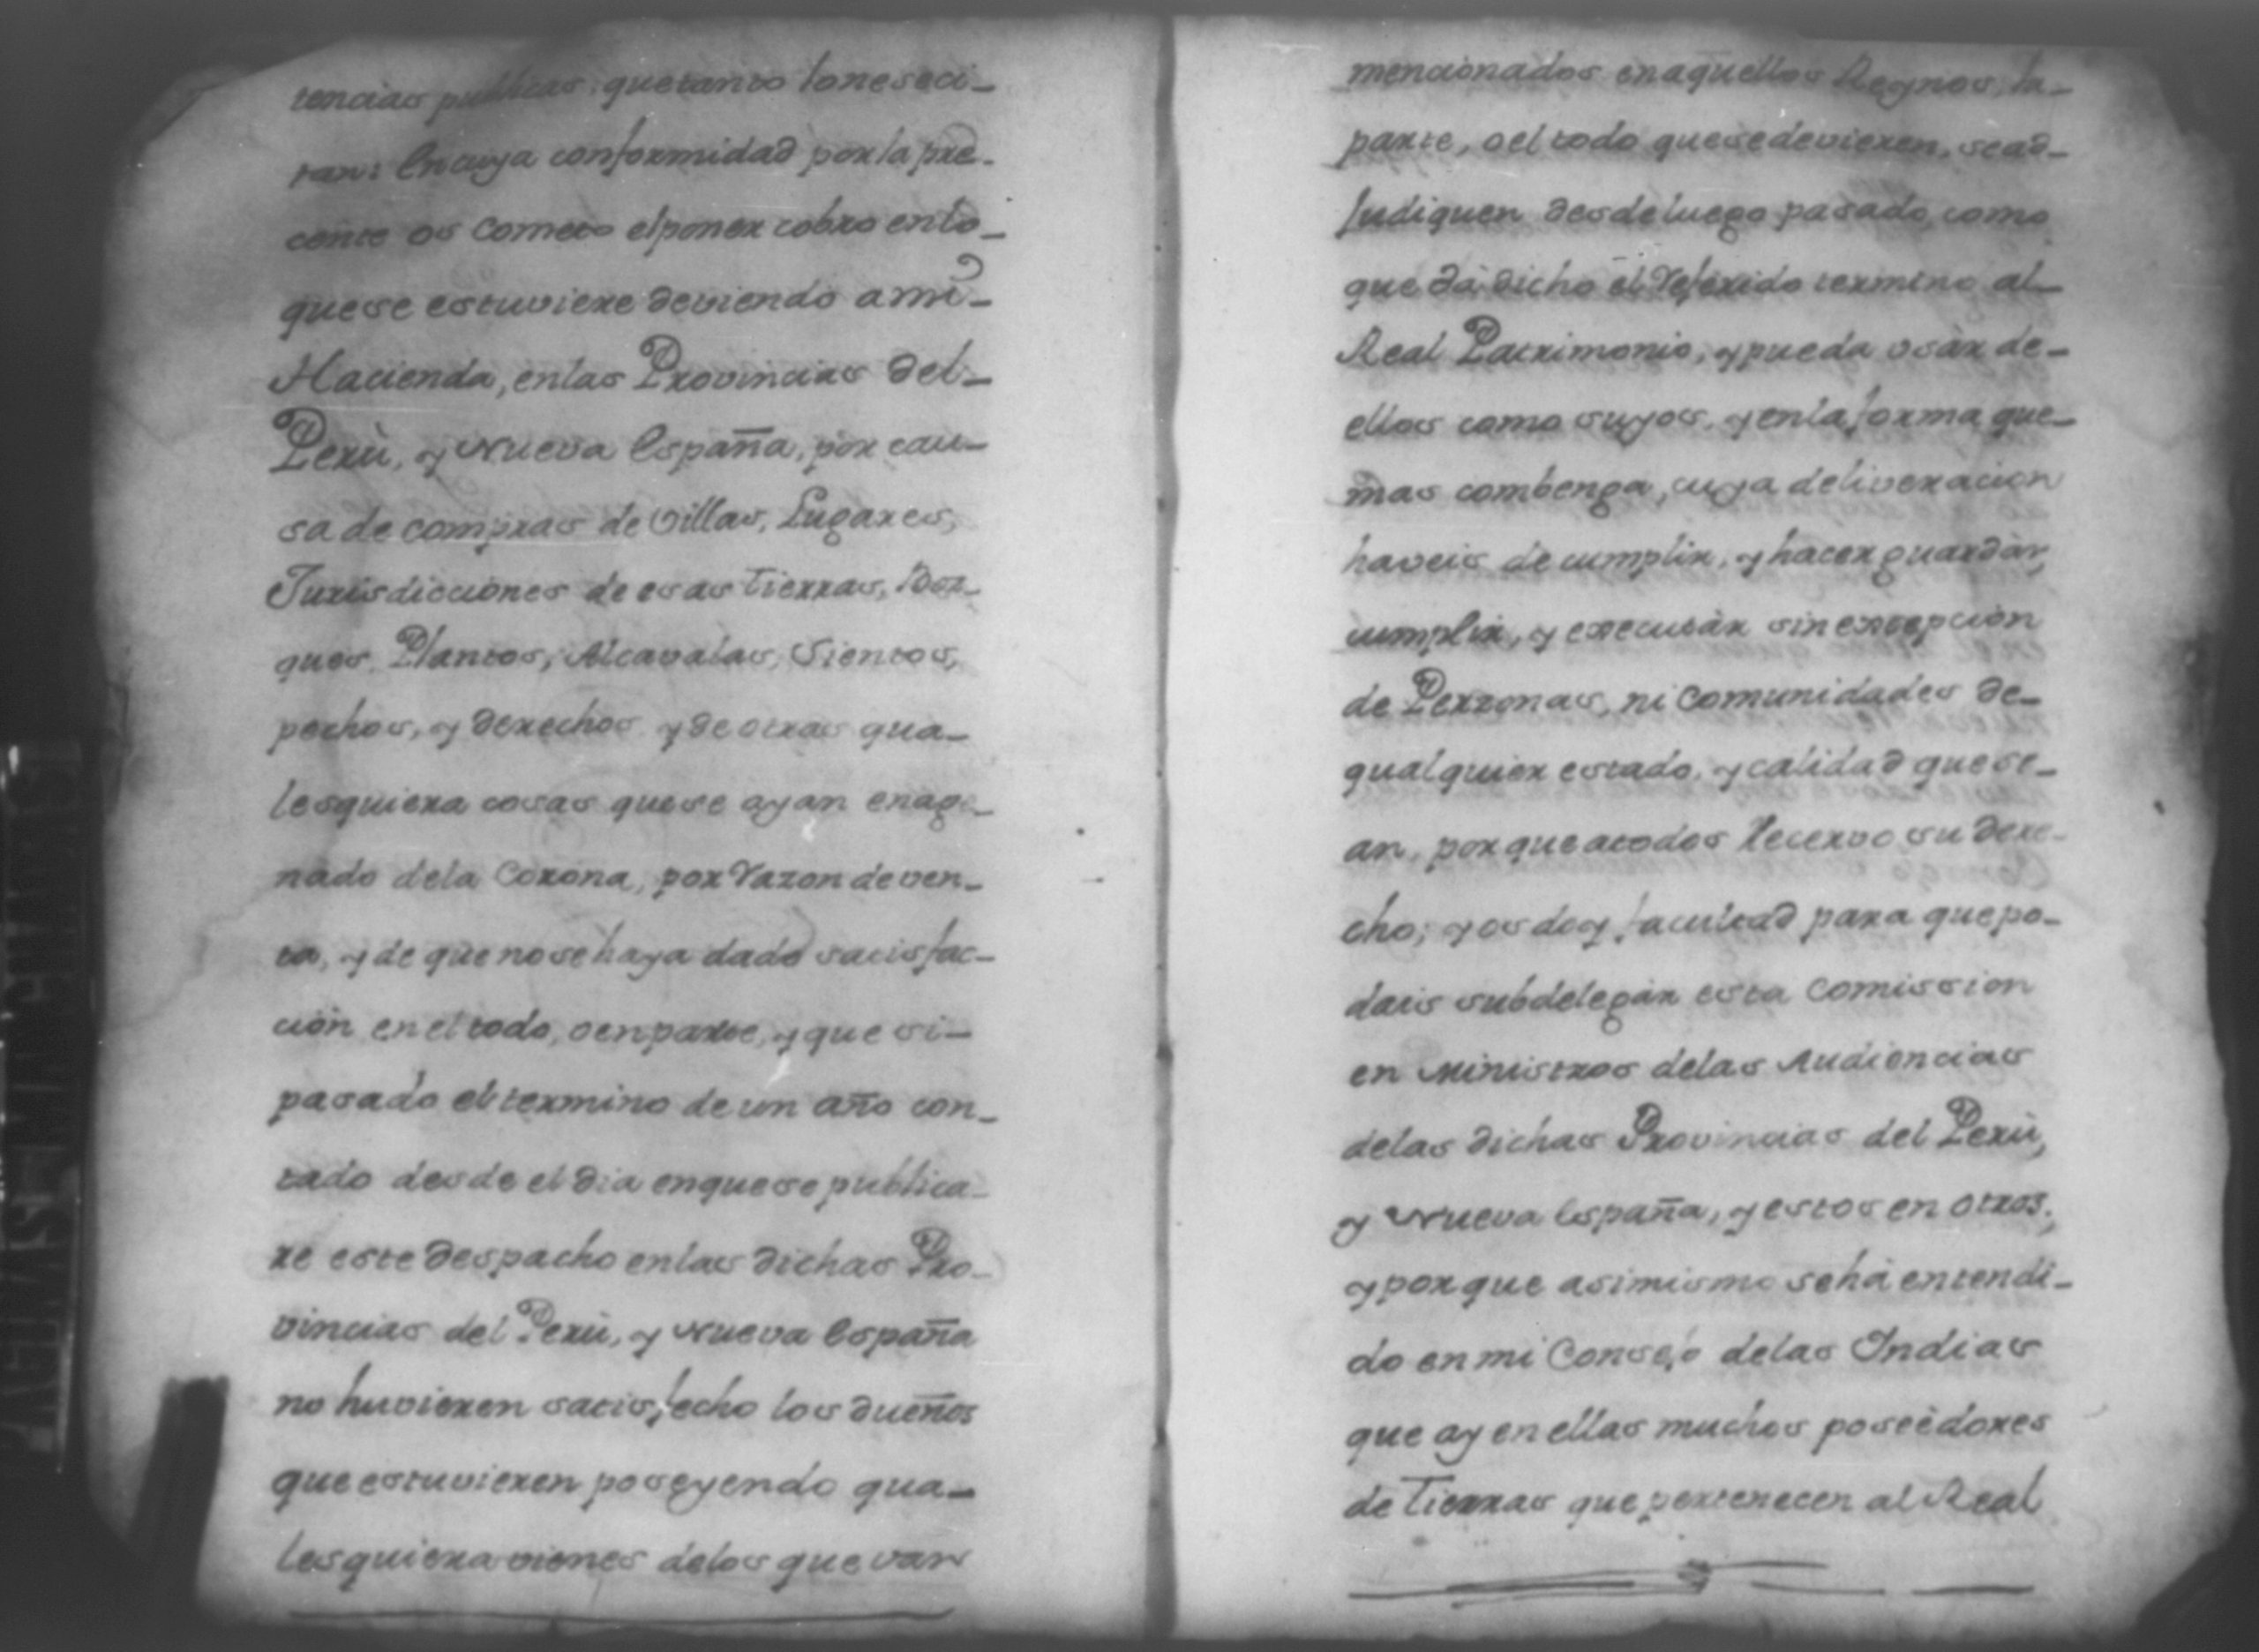 tencias publicas, que tanto lo neseci-
tan: En cuya conformidad por la pre-
cente os Cometo el poner cobro en lo-
que se estuviere deviendo a mi-
Hacienda, en las Provincias del-
Perù, y Nueva España, por cau-
sa de compras de Villas, Lugares,
Jurisdicciones de esas Tierras, Bos-
ques, Plantos, Alcavalas, Sientos,
pechos, y derechos y de otras qua-
lesquiera cosas que se ayan enage-
nado dela Corona, por razon de ven-
ta, y de que no se haya dado satisfac-
ciòn en el todo, o en parte, y que si-
pasado el termino de un año con-
tado desde el dia en que se publica-
re este despacho en las dichas Pro-
vincias del Perù, y Nueva España
no huvieren satisfecho los dueños
que estuvieren poseyendo qua-
lesquiera vienes delos que van
mencionados en aquellos Reynos, la-
parte, o el todo que se devieren, se ad-
judiquen desde luego pasado, como
que dà dicho el referido termino al-
Real Patrimonio, y pueda usàr de-
ellos como suyos, y en la forma que-
mas combenga, cuya deliveracion
haveis de cumplir, y hacer guardàr,
cumplir, y executàr sin excepcion
de Perzonas, ni Comunidades de-
qualquier estado, y calidad que se-
an, por que a todos Recervo su dere-
cho; y os doy facultad para que po-
dais subdelegàr esta Comission
en Ministros delas Audiencias
delas dichas Provincias del Perù,
y Nueva España, y estos en otros;
y por que asimismo se hà entendi-
do en mi Consejo delas Indias
que ay en ellas muchos poseèdores
de Tierras que pertenecen al Real